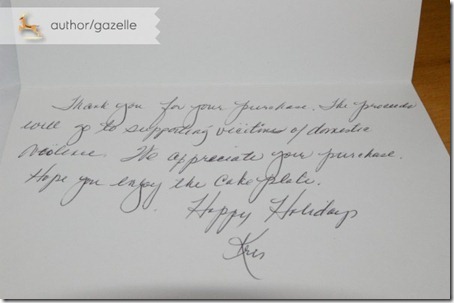 author/gazelle
Thank you for your purchase. The proceeds
will go to supporting victims of domestic
violence. We appreciate your purchase.
Hope you enjoy the cake plate.
Happy Holidays
Kris